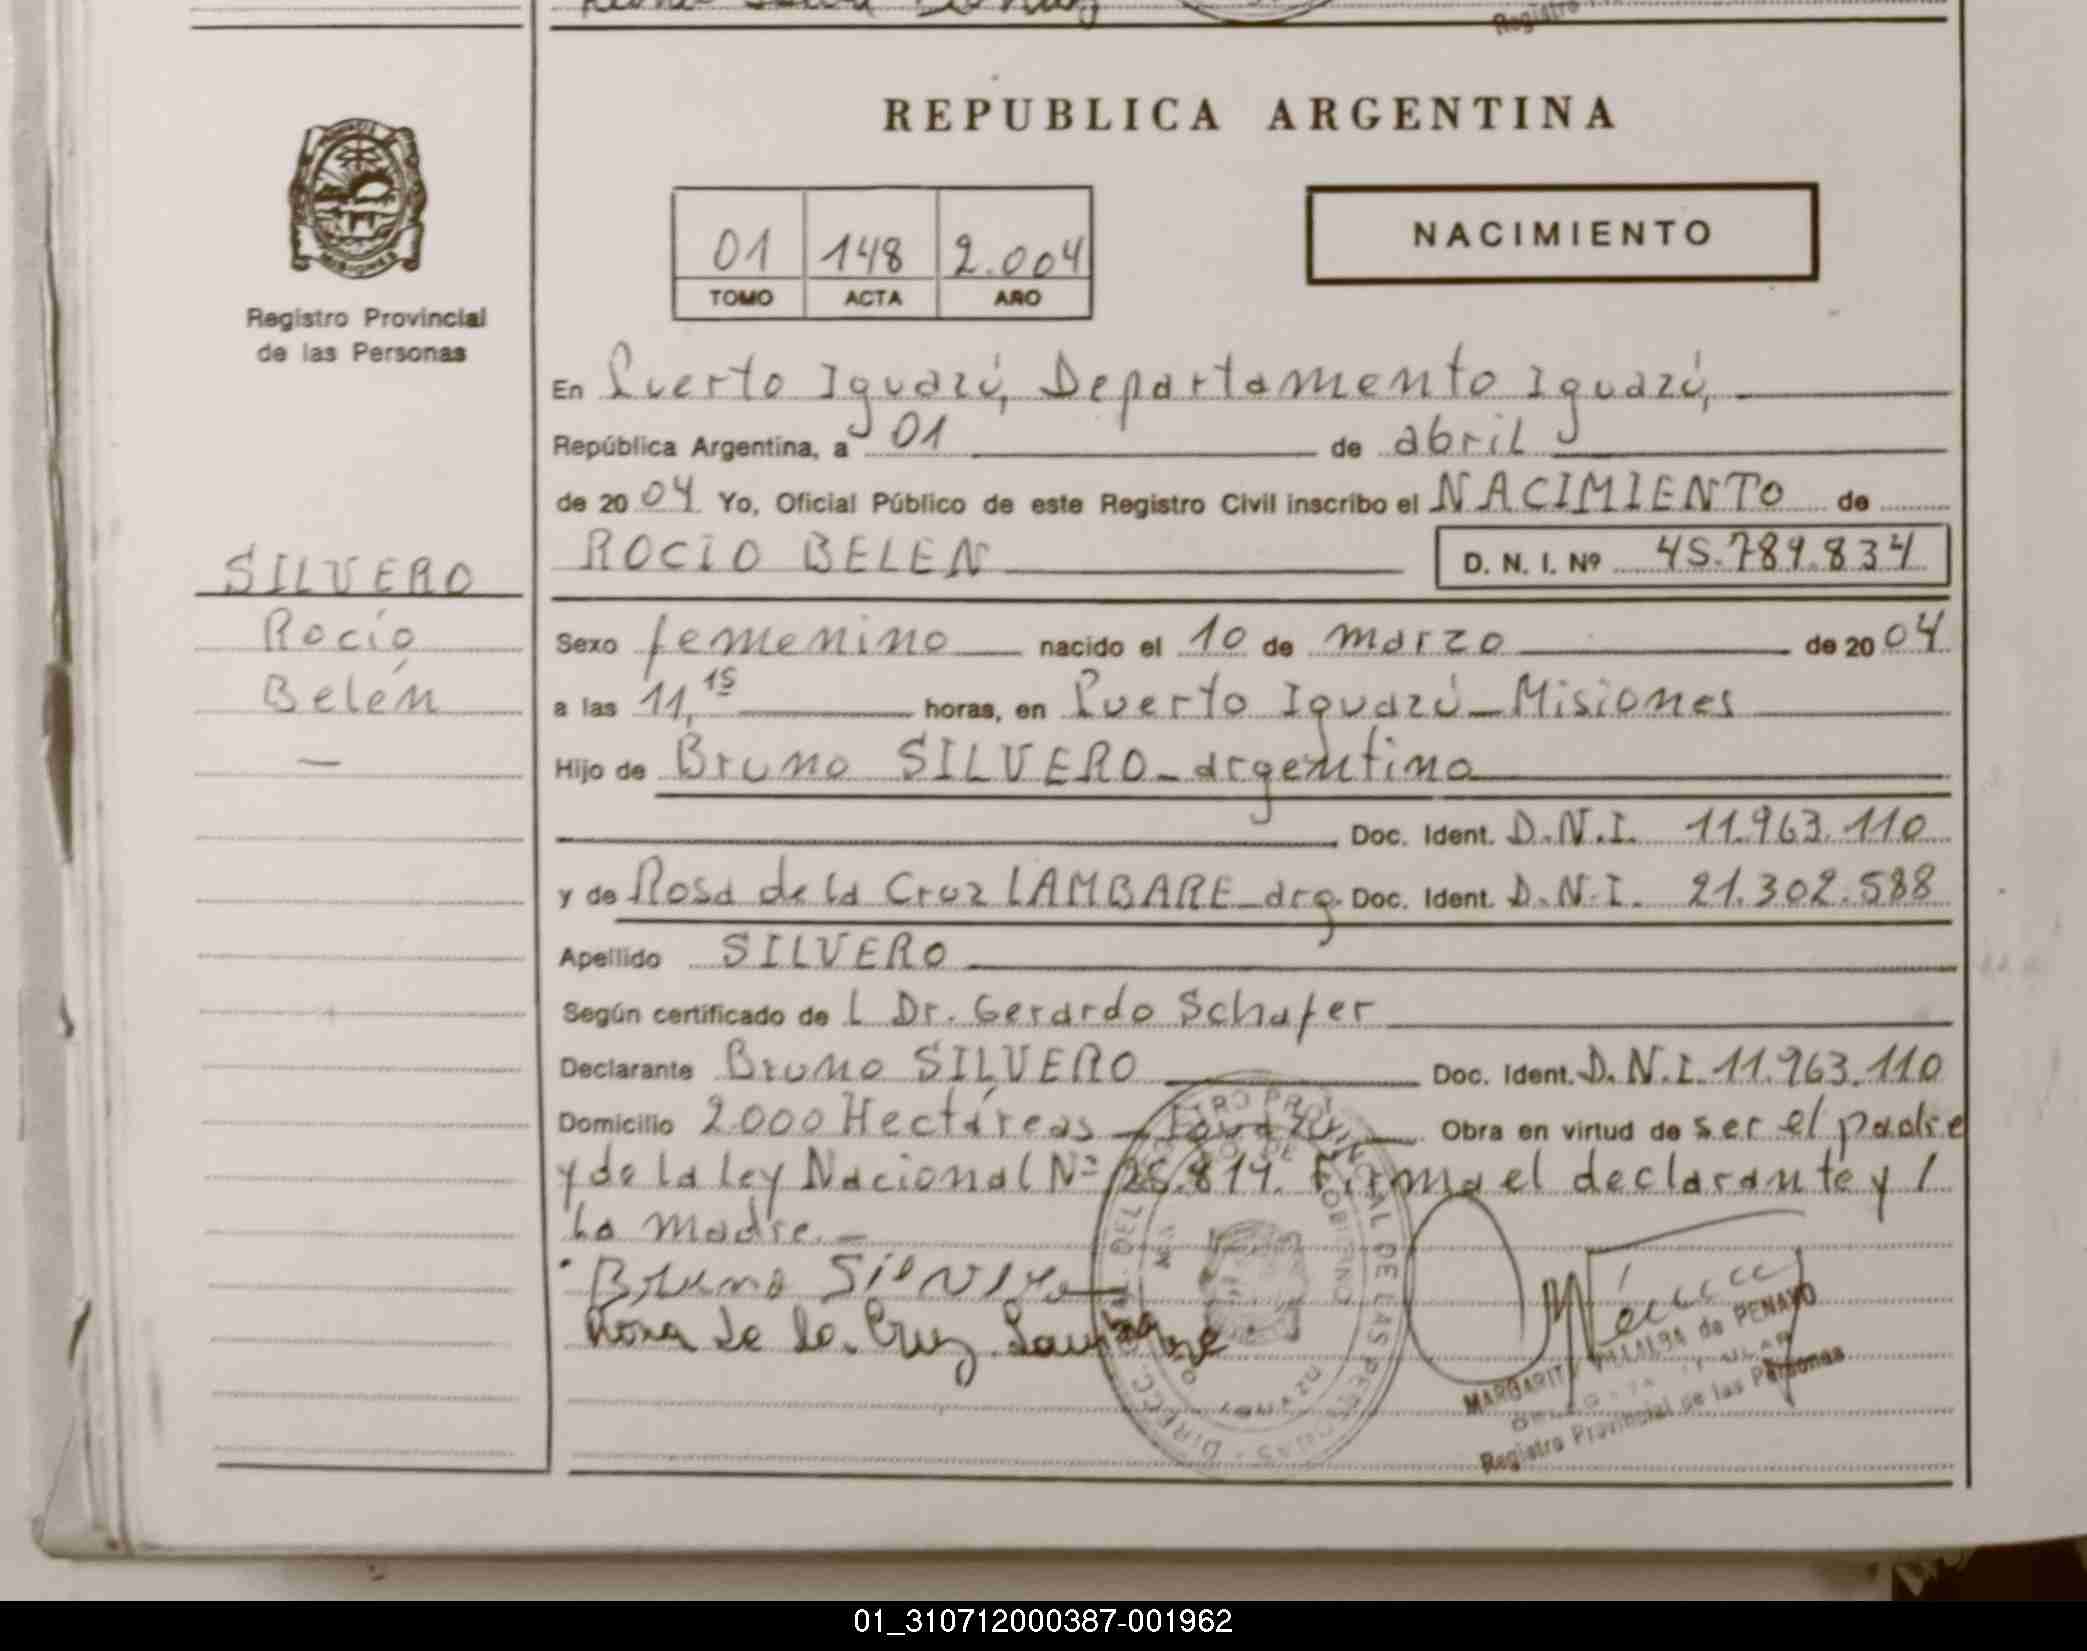 REPUBLICA ARGENTINA
NACIMIENTO
01 148 2.004
TOMO ACTA AÑO
MISIONES
Registro Provincial
de las Personas
En Puerto Iguazú, Departamento Iguazú,
República Argentina, a 01 de abril
de 2004 Yo, Oficial Público de este Registro Civil inscribo el NACIMIENTO de
ROCIO BELEN D. N. I. Nº 45.789.834
SILVERO
Rocío
Belén
Sexo femenino nacido el 10 de marzo de 2004
a las 11,15 horas, en Puerto Iguazú_Misiones
Hijo de Bruno SILVERO_argentino
Doc. Ident. D.N.I. 11.963.110
y de Rosa de la Cruz LAMBARE_arg. Doc. Ident. D.N.I. 21.302.588
Apellido SILVERO
Según certificado de L Dr. Gerardo Schafer
Declarante Bruno SILVERO Doc. Ident. D.N.I. 11.963.110
Domicilio 2.000 Hectáreas _ Iguazú Obra en virtud de ser el padre
y de la Ley Nacional Nº 25.819. Firma el declarante y /
La madre._
Bruno Silvero
Rosa de la Cruz Lambare
MARGARITA VILLALBA de PENAYO
Registro Provincial de las Personas
01_310712000387-001962